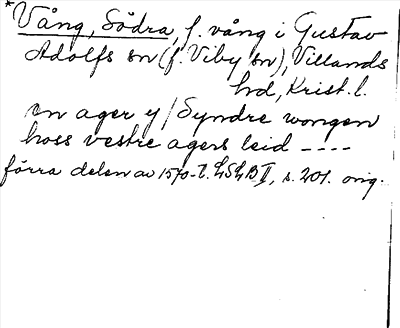 *Vång, Södra, f. vång i Gustav
Adolfs sn (f. Viby sn), Villands
hd, Krist. l.
en ager y / Syndre wongen
hoss vestre agers leid ----
förra delen av 1570-t. LSLB II, s. 201. orig.